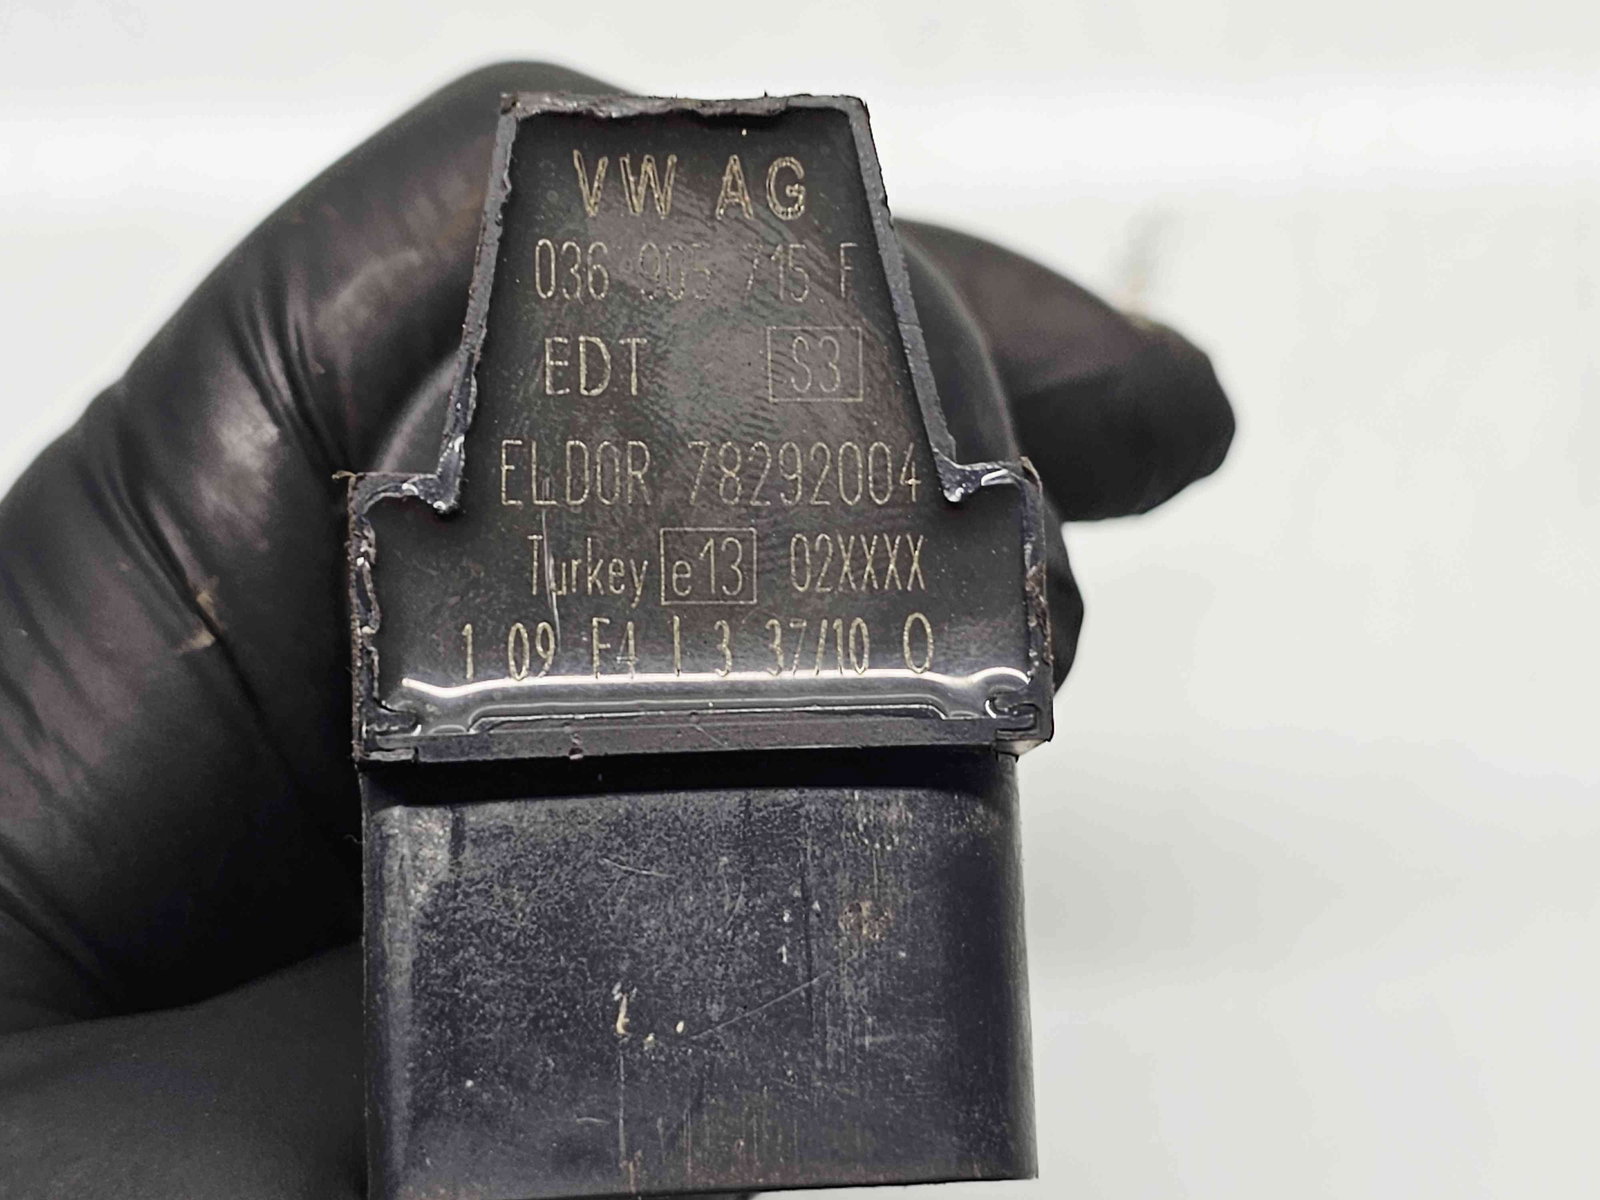 VW AG
036 905 715 F
EDT S3
ELDOR 78292004
Turkey e13 02XXXX
1 09 F4 I 3 37/10 O